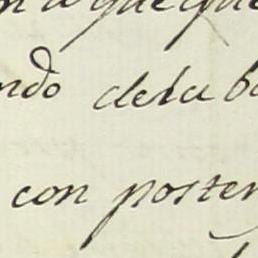 aqueque
ndo dela ba
con poster